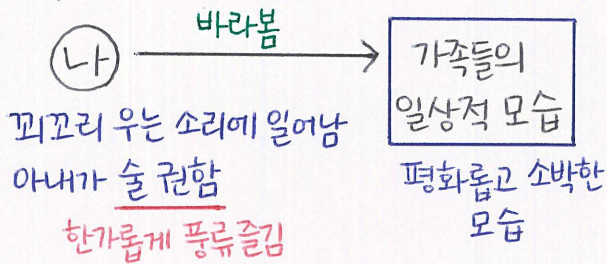 바라봄
나
가족들의
일상적 모습
꾀꼬리 우는 소리에 일어남
아내가 술 권함
한가롭게 풍류즐김
평화롭고 소박한
모습